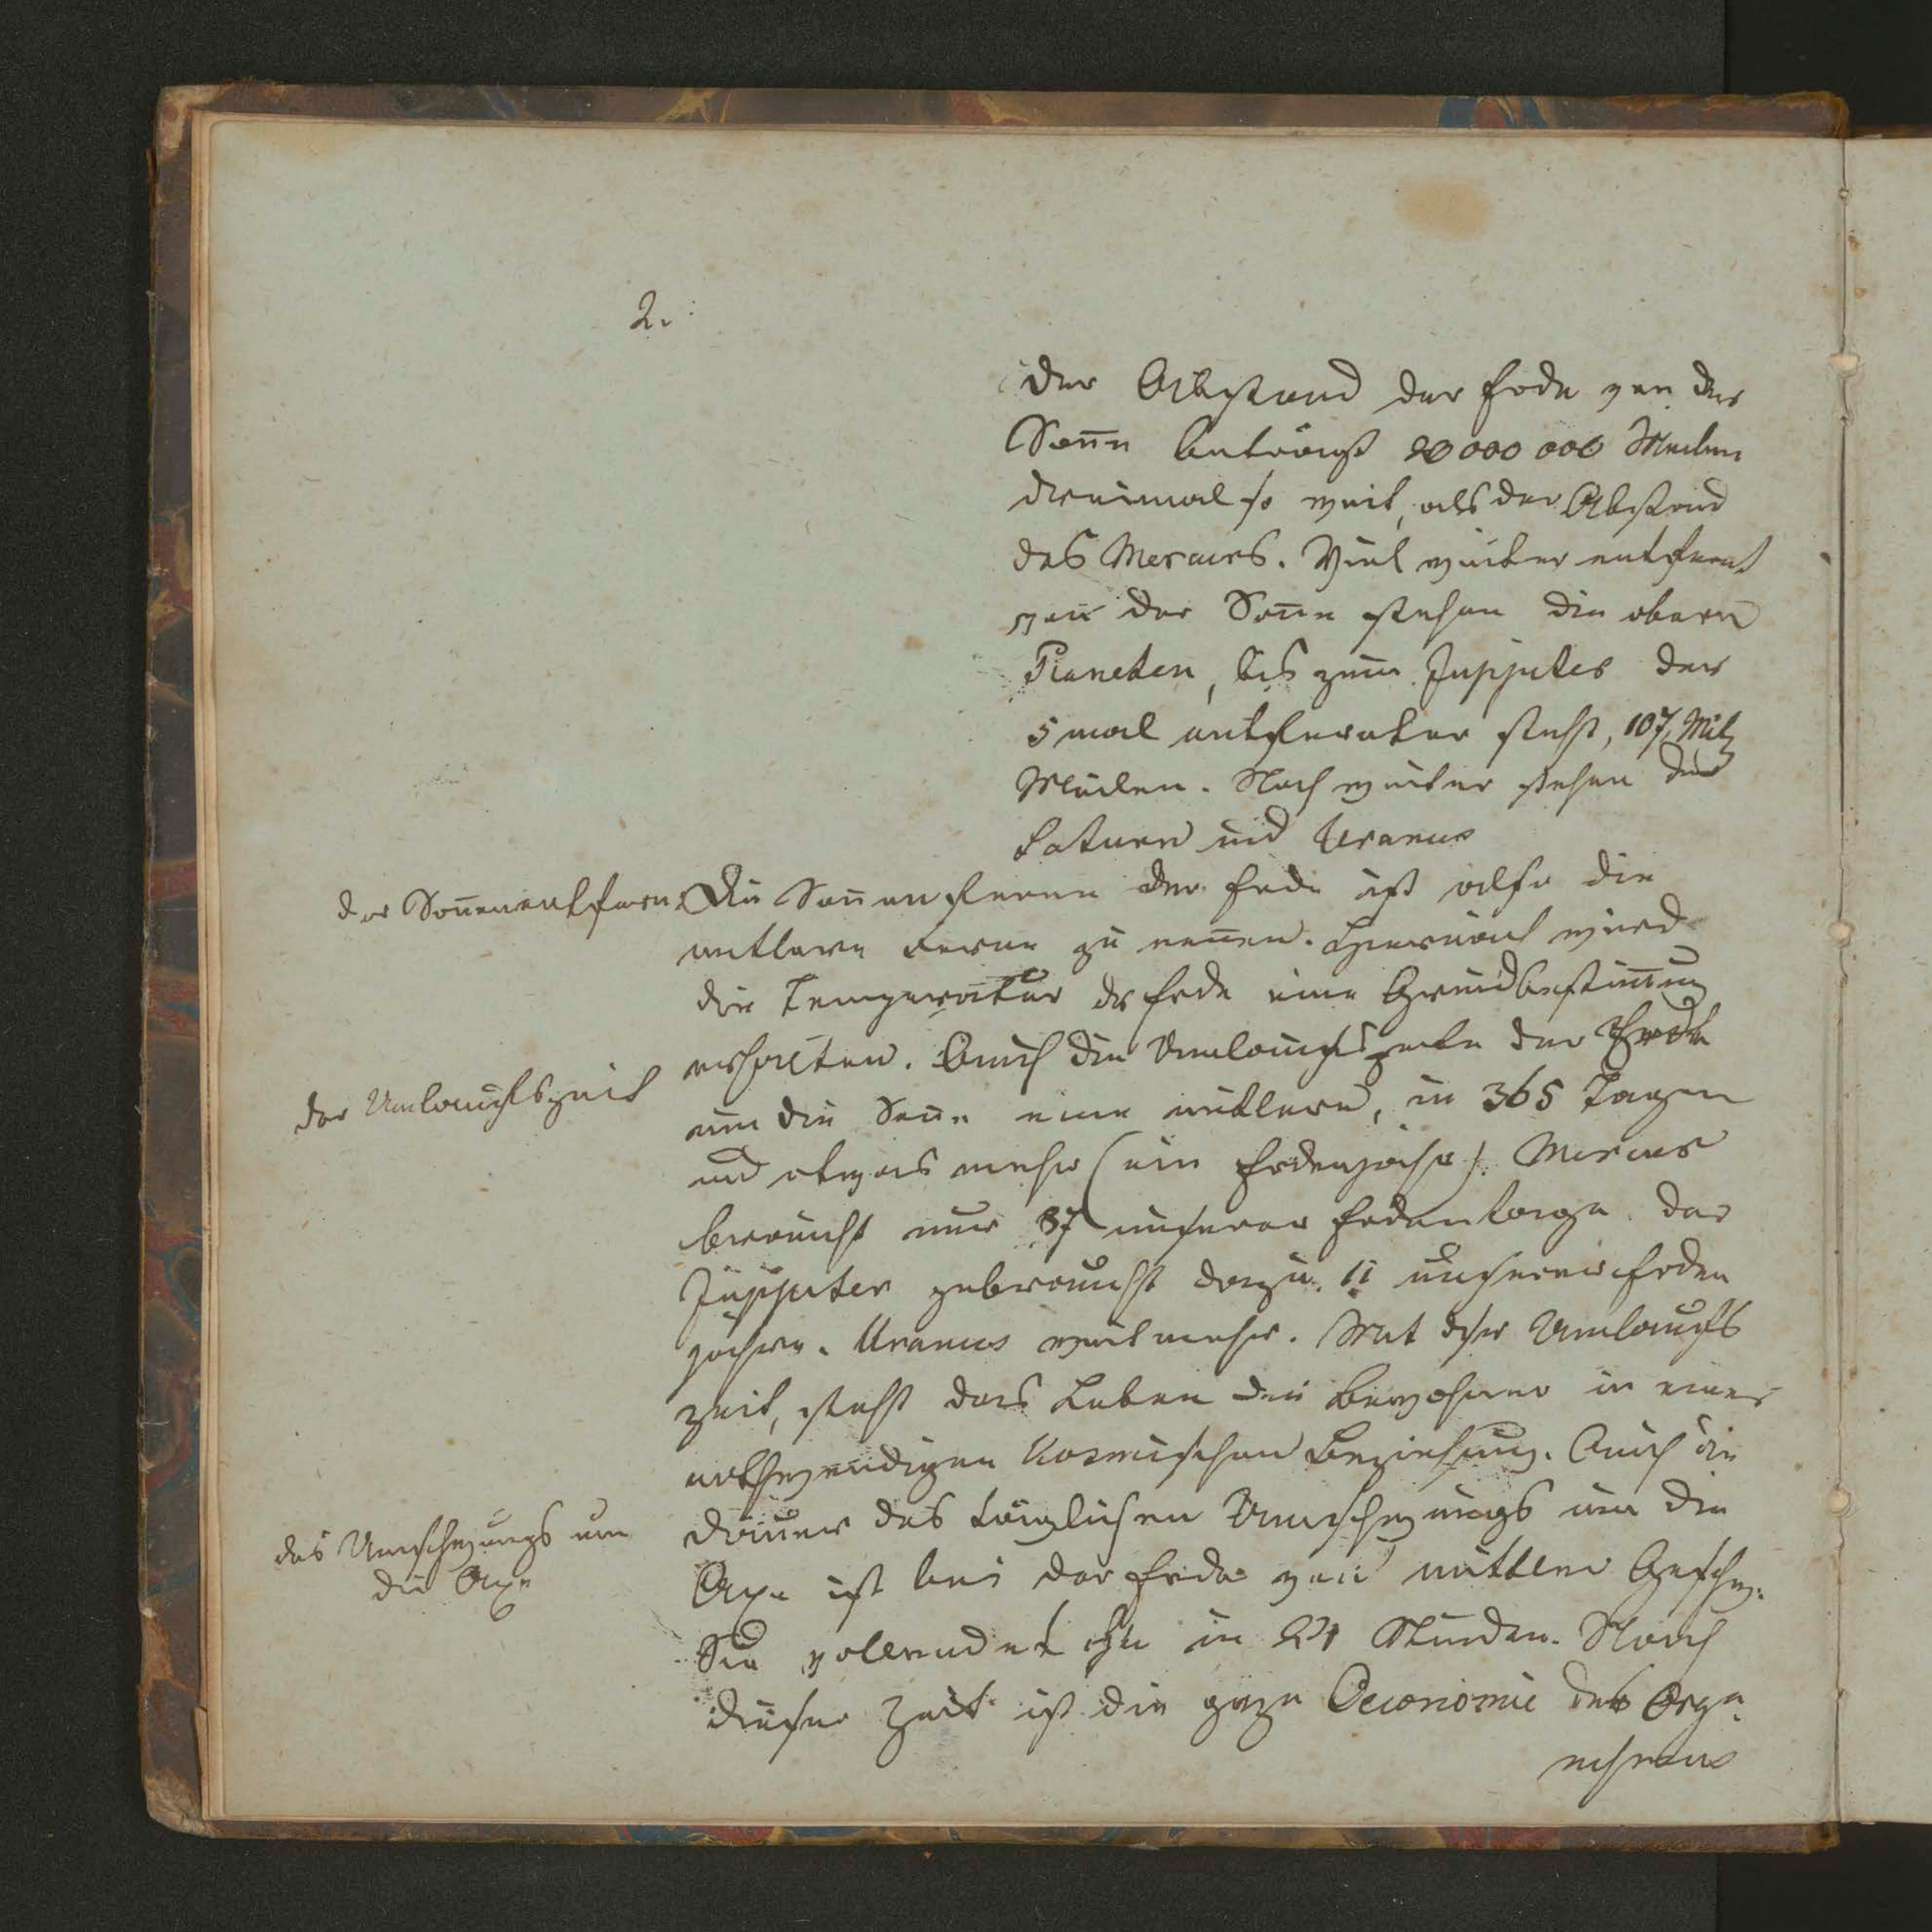 2.
Der Abstand der Erde von der
Soñe beträgt 20 000 000 Meilen
dreimal so weit, als der Abstand
des Mercurs. Viel weiter entfernt
von der Soñe stehen die obern
Planeten, bis zum Juppiter der
5 mal entfernter steht, 107 Mill
Meilen. Noch weiter stehen der
Saturn und Uranus
der Soñenentfern.
Die Soñenferne der Erde ist also die
mittlere Ferne zu neñen. Hiernach wird
die Temperatur der Erde eine Grundbestim̃ung
erhalten. Auch die Umlaufszeit der Erde
der Umlaufszeit
um die Soñe eine mittlere, in 365 Tagen
und etwas mehr (ein Erdenjahr). Mercur
braucht nur 87 unserer Erdentage. Der
Juppiter gebraucht dazu 11 unserer Erden
jahre. Uranus weit mehr. Mit dieser Umlaufs
zeit, steht das Leben der Bewohner in einer
nothwendigen kosmischen Beziehung. Auch die
Dauer des täglichen Umschwungs um die
des Umschwungs um
die Axe
Axe ist bei der Erde von mittler Geschw.
Sie vollendet ihn in 24 Stunden. Nach
dieser Zeit ist die ganze Oeconomie der Orga
nismen